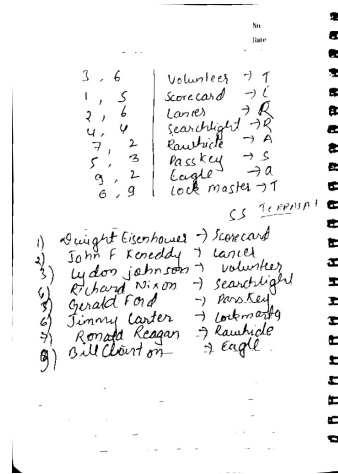 No
Date
3, 6 | Volunteer → T
1, 5 | Scorecard → C
2, 6 | Lancer → R
4, 4 | Searchlight → R
7, 2 | Rawhide → A
5, 3 | Passkey → S
9, 2 | Eagle → a
6, 9 | Lock master → T
SS
1) Dwight Eisenhower → Scorecard
2) John F Keneddy → Lancer
3) Lydon johnson → Volunteer
Richard Nixon → Searchlight
Gerald Ford → Passkey
6) Jimmy Carter → Lockmasta
7) Ronald Reagan → Rawhide
Bill Clinton → Eagle